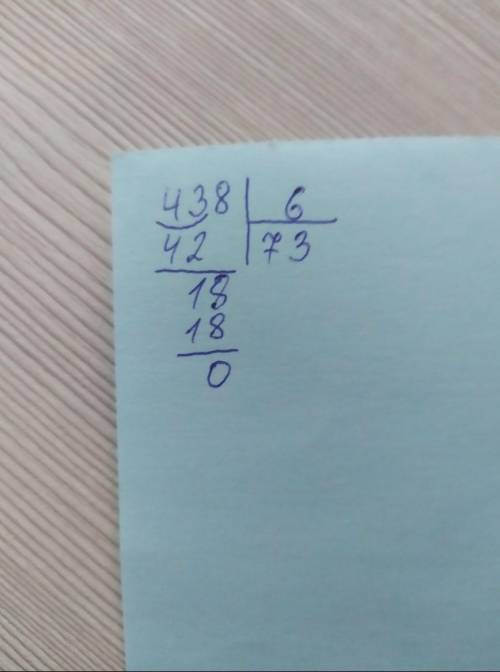 438 6
42 73
18
18
0